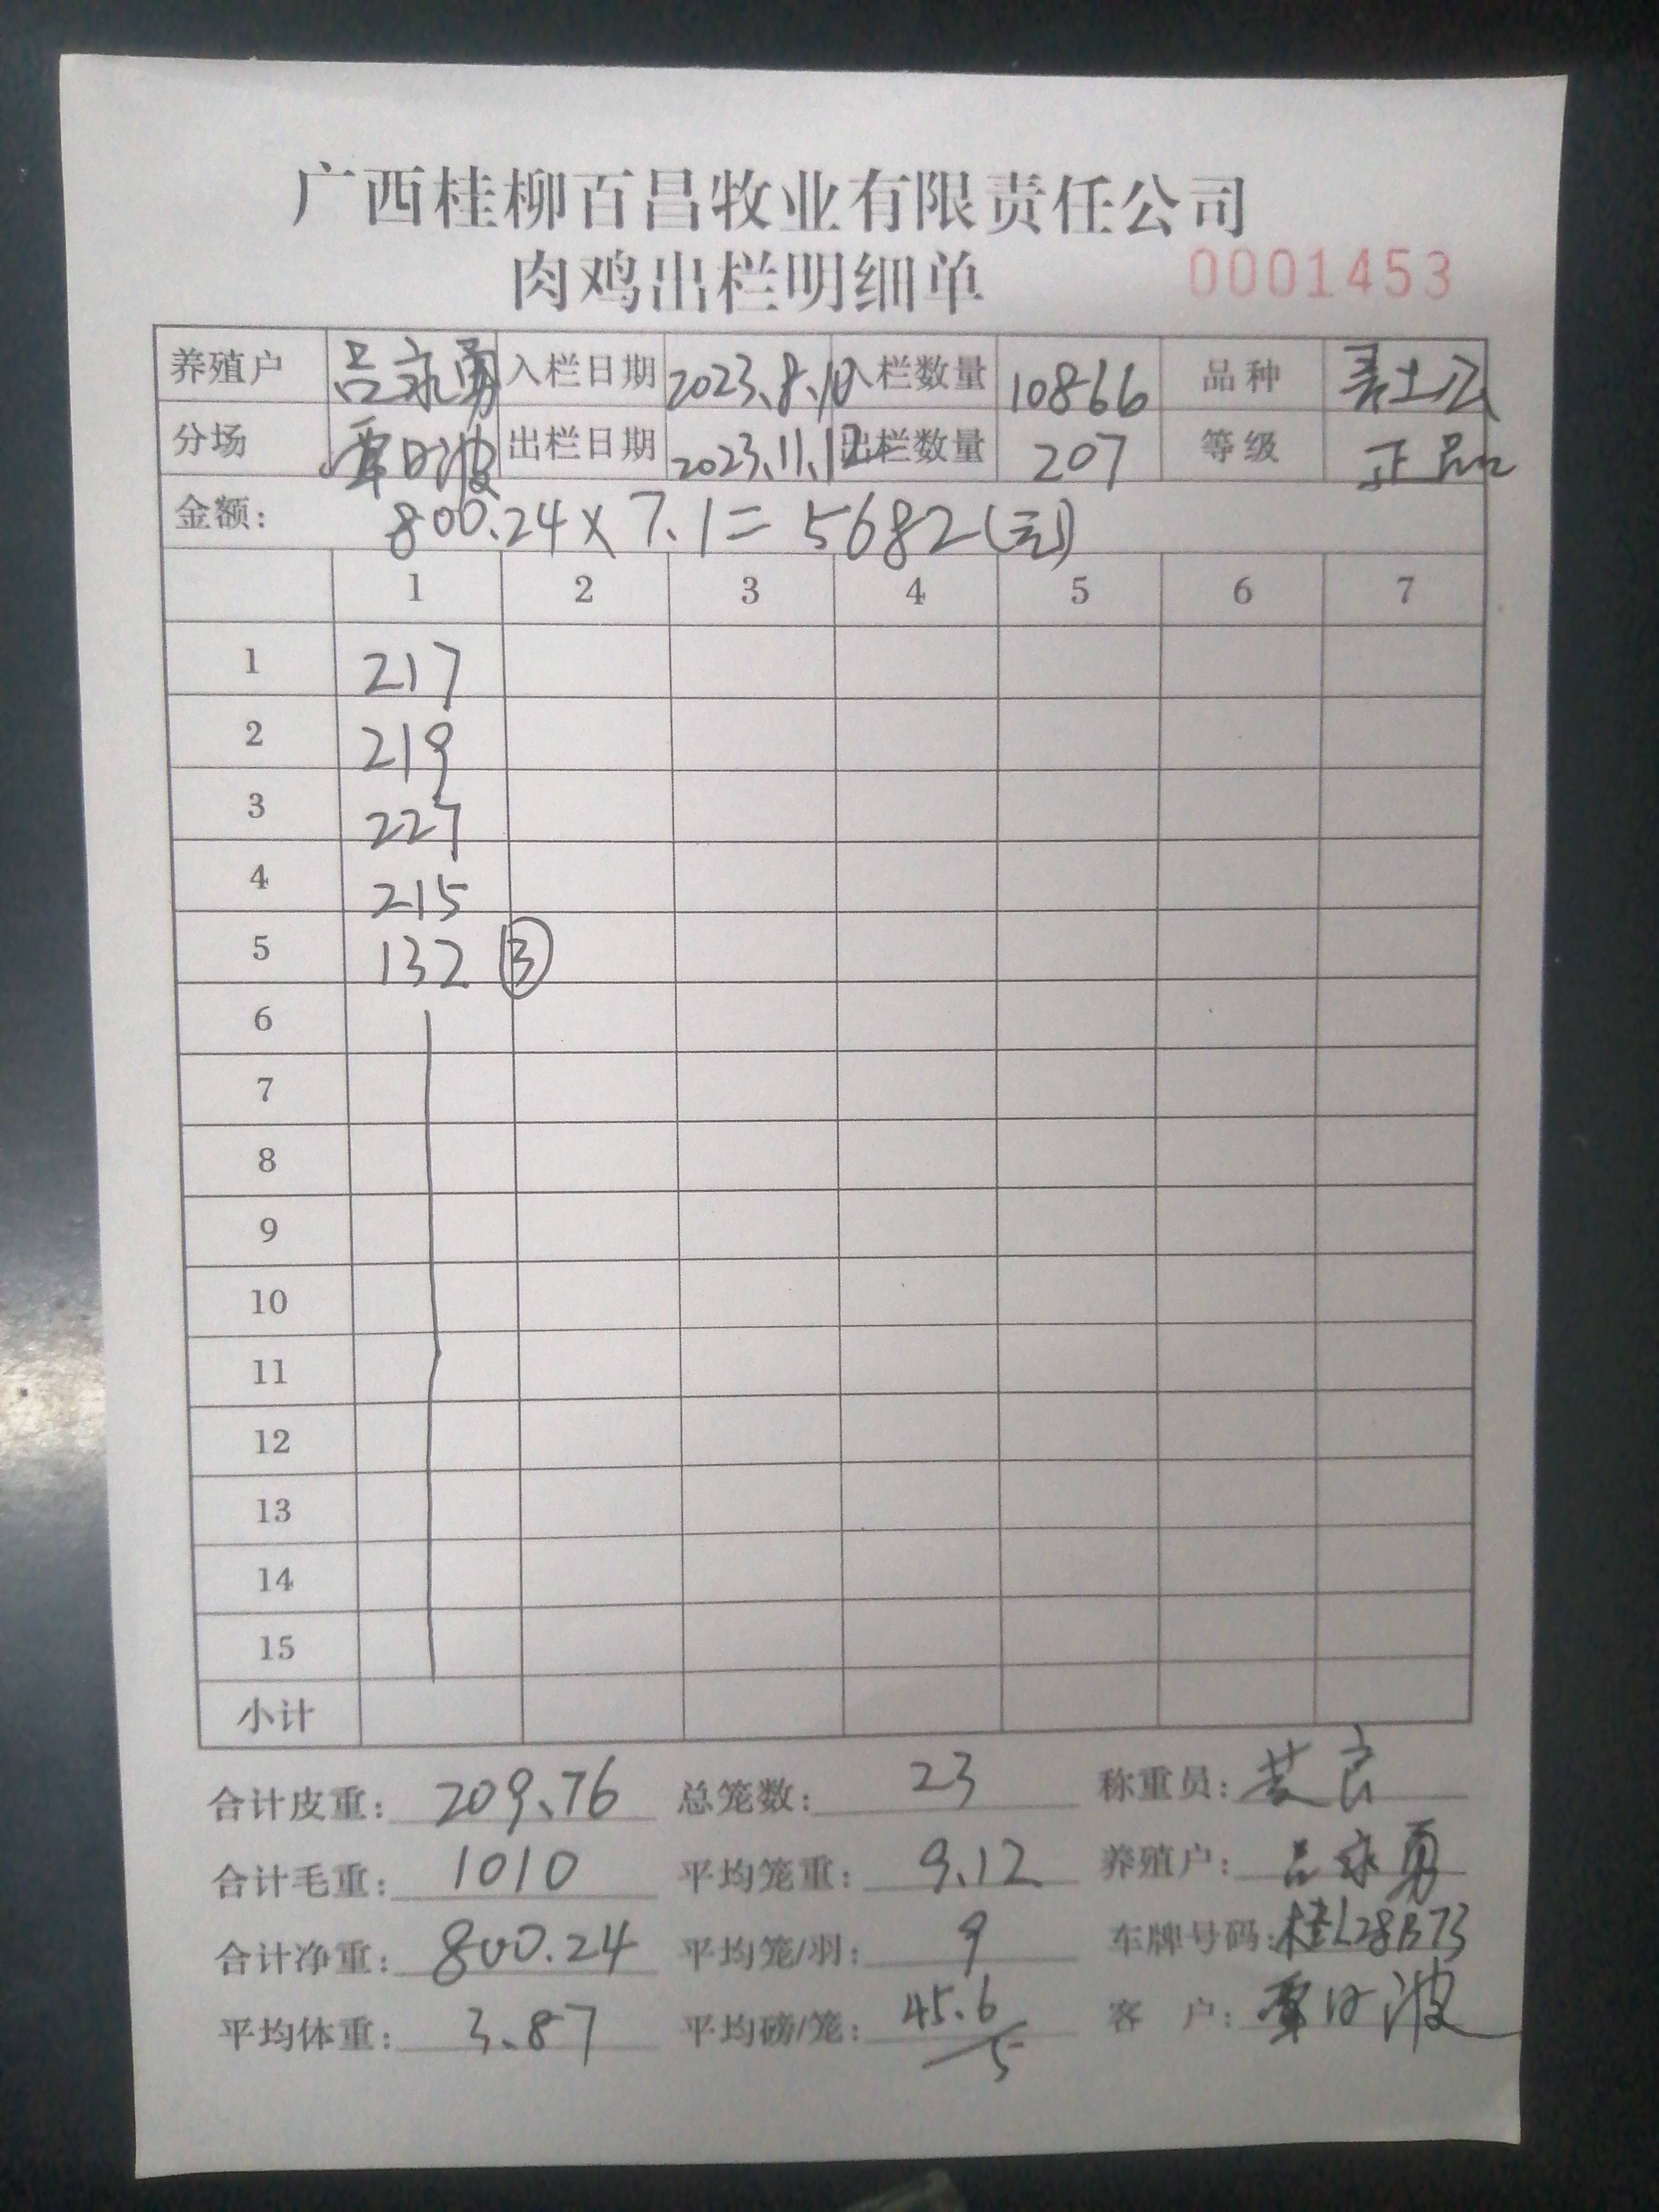 广西桂柳百昌牧业有限责任公司
肉鸡出栏明细单 0001453
养殖户 吕永勇 入栏日期 2023.8.10 入栏数量 10866 品种 土公
分场 覃日波 出栏日期 2023.11.12 出栏数量 207 等级 正品
金额: 800.24×7.1=5682(元)
1 2 3 4 5 6 7
1 217
2 219
3 227
4 215
5 132 ③
6
7
8
9
10
11
12
13
14
15
小计
合计皮重: 209.76 总笼数: 23 称重员:
合计毛重: 1010 平均笼重: 9.12 养殖户: 吕永勇
合计净重: 800.24 平均笼/羽: 9 车牌号码: 桂L28B73
平均体重: 3.87 平均磅/笼: 45.6/5 客户: 覃日波